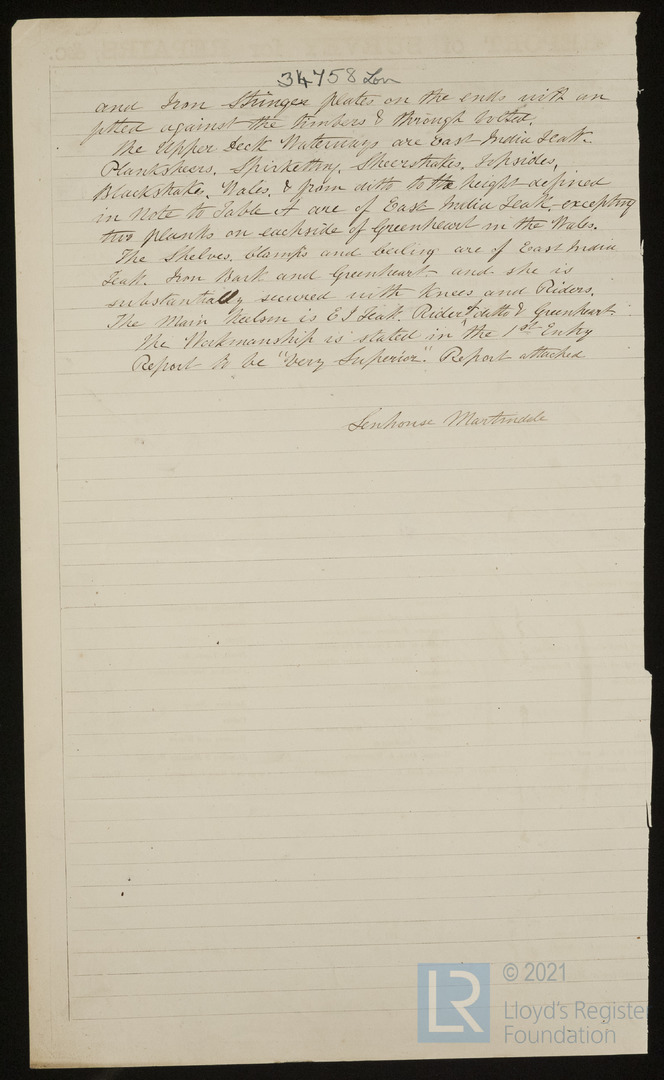 34758 Lon
and Iron Stringer plates on the ends with an
fitted against the timbers & through bolted.
The Upper Deck Waterways are East India Teak.
Planksheers, Spirketting, Sheerstrakes, Topsides,
Blackstrake, Wales, & from ditto to the height defined
in Note to Table A are of East India Teak, excepting
two planks on each side of Greenheart in the Wales.
The Shelves, Clamps and Ceiling are of East India
Teak. Iron Bark and Greenheart and she is
substantially secured with Knees and Riders.
The Main Keelson is E I Teak. Rider ditto & Greenheart
The Workmanship is stated in the 1st Entry
Report to be "Very Superior". Report attached
Senhouse Martindale
LR
© 2021
Lloyd's Register
Foundation